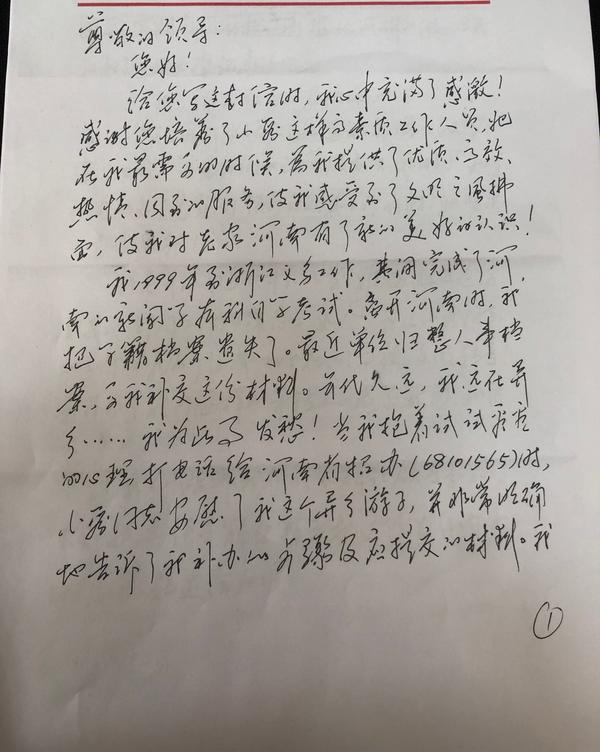 尊敬的领导：
您好！
给您写这封信时，我心中充满了感激！
感谢您培养了小马这样高素质工作人员，她
在我最需要的时候，为我提供了优质、高效、
热情、周到的服务，使我感受到了文明之风拂
面，使我对老家河南有了新的美好的认识！
我1999年到浙江义乌工作，其间完成了河
南的新闻学本科自学考试。离开河南时，我
把学籍档案遗失了。最近单位归整人事档
案，要我补交这份材料。年代久远，我远在异
乡……我为此事发愁！当我抱着试试看看
的心理打电话给河南省招办（68101565）时，
小马同志安慰了我这个异乡游子，并非常明确
地告诉了我补办的步骤及应提交的材料。我
①